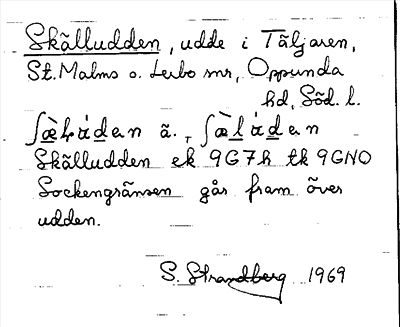 Skälludden, udde i Täljaren,
St. Malms o. Lerbo snr, Oppunda
hd, Söd. l.
ä., 
Skälludden ek 9G7h tk 9GNO
Sockengränsen går fram över
udden.
S. Strandberg 1969